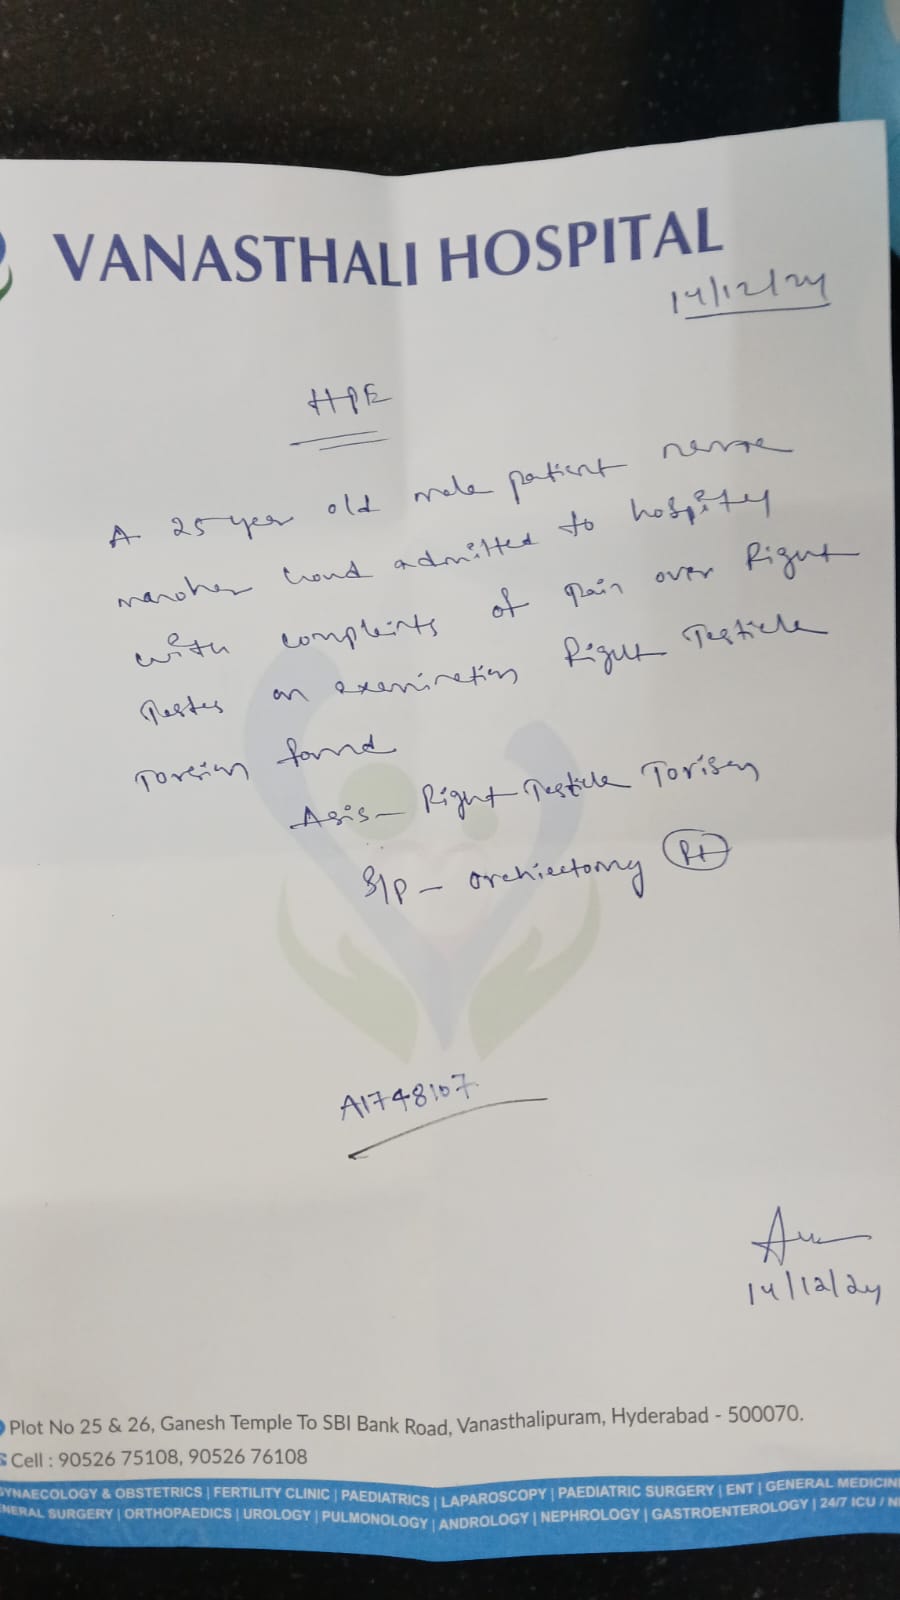 VANASTHALI HOSPITAL
14/12/24
HPE
A 25 year old male patient name
manohar chand admitted to hospity
with complaints of pain over Right
Testes on examination Right Testicle
Torsion found
Asis - Right Testicle Torisen
S/P - orchiectomy Rt
A1748107
14/12/24
Plot No 25 & 26, Ganesh Temple To SBI Bank Road, Vanasthalipuram, Hyderabad - 500070.
Cell : 90526 75108, 90526 76108
GYNAECOLOGY & OBSTETRICS | FERTILITY CLINIC | PAEDIATRICS | LAPAROSCOPY | PAEDIATRIC SURGERY | ENT | GENERAL MEDICINE
GENERAL SURGERY | ORTHOPAEDICS | UROLOGY | PULMONOLOGY | ANDROLOGY | NEPHROLOGY | GASTROENTEROLOGY | 24/7 ICU /